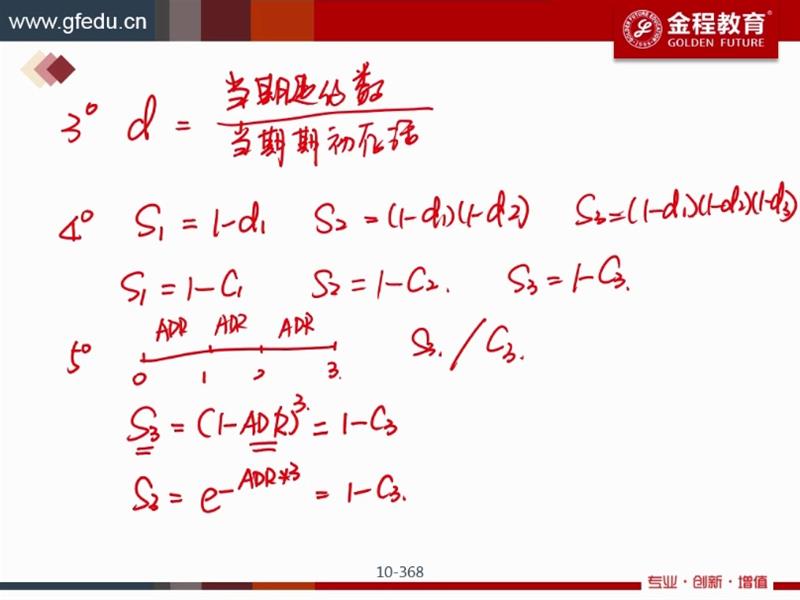 www.gfedu.cn
金程教育®
GOLDEN FUTURE
3° d = 当期违约数
当期期初存活
4° S₁ = 1-d₁ S₂ = (1-d₁)(1-d₂) S₃=(1-d₁)(1-d₂)(1-d₃)
S₁ = 1-C₁ S₂ = 1-C₂. S₃ = 1-C₃.
ADR ADR ADR
5° S₃. / C₃.
0 1 2 3.
S₃ = (1-ADR)³· = 1-C₃
S₃ = e^-ADR*3 = 1-C₃.
10-368
专业·创新·增值